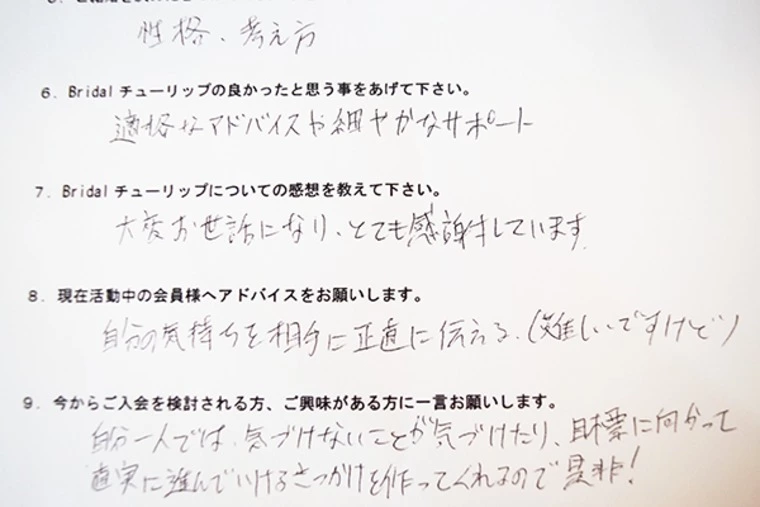 性格、考え方
6. Bridal チューリップの良かったと思う事をあげて下さい。
適格なアドバイスや細やかなサポート
7. Bridal チューリップについての感想を教えて下さい。
大変お世話になり、とても感謝しています
8. 現在活動中の会員様へアドバイスをお願いします。
自分の気持ちを相手に正直に伝える、(難しいですけど)
9. 今からご入会を検討される方、ご興味がある方に一言お願いします。
自分一人では、気づけないことが気づけたり、目標に向かって
直実に進んでいけるきっかけを作ってくれるので是非!